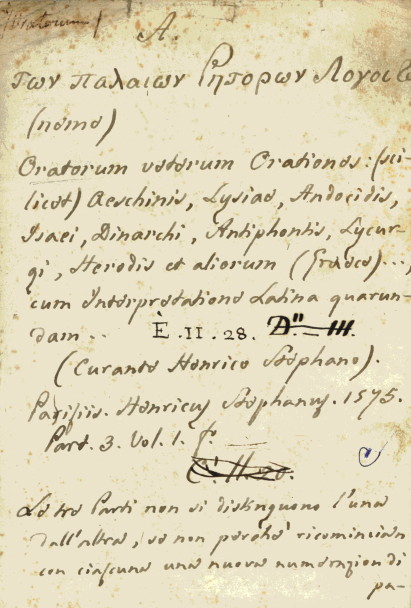 Oratorum
A.
των παλαιων Ρητορων Λογοι
(nomo)
Oratorum veterum Orationes: (sci-
licet) Aeschinis, Lysiae, Andocidis,
Isaei, Dinarchi, Antiphontis, Lycur-
gi, Herodis et aliorum (Graece)...,
cum Interpretatione Latina quarun-
dam.. È.II.28. D".-III.
(Curante Henrico Stephano).
Parisiis. Henricus Stephanus. 1575.
Part. 3. Vol. 1. f.
C. II. 20.
Le tre Parti non si distinguono l'una
dall'altra, se non perchè ricomincian
con ciascuna una nuova numerazion di
pa-